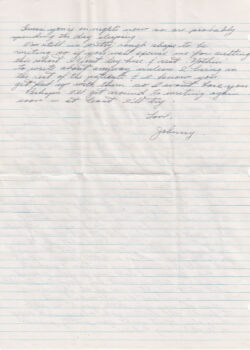 Guess you're on nights now so are probably
spending the day sleeping.
I'm still in pretty rough shape to be
writing so you'll just excuse me for cutting
this short. I just try here & rest. Nothin'
to write about anyway unless I bring in
the rest of the patients & I know you
get fed up with them so I won't bore you.
Perhaps I'll get around to writing again
soon - at least I'll try
Love,
Johnny